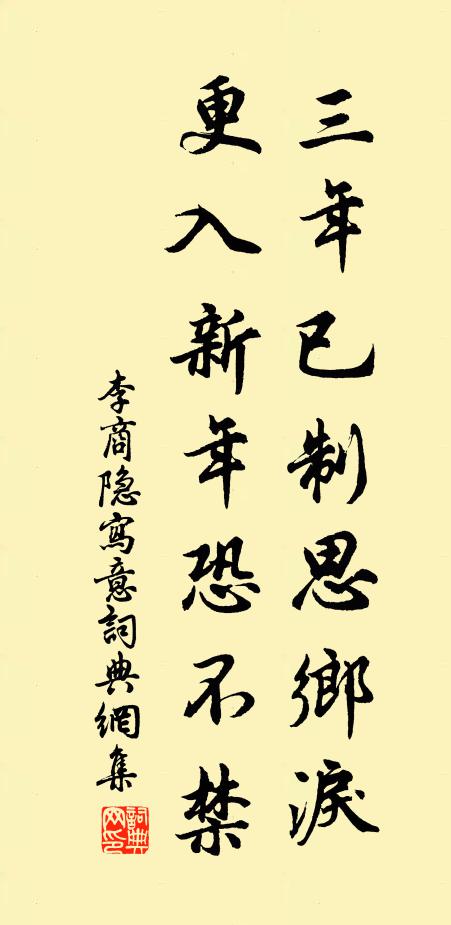 三年已制思鄉淚
更入新年恐不禁
李商隐寫意詞典網集
詞典網印